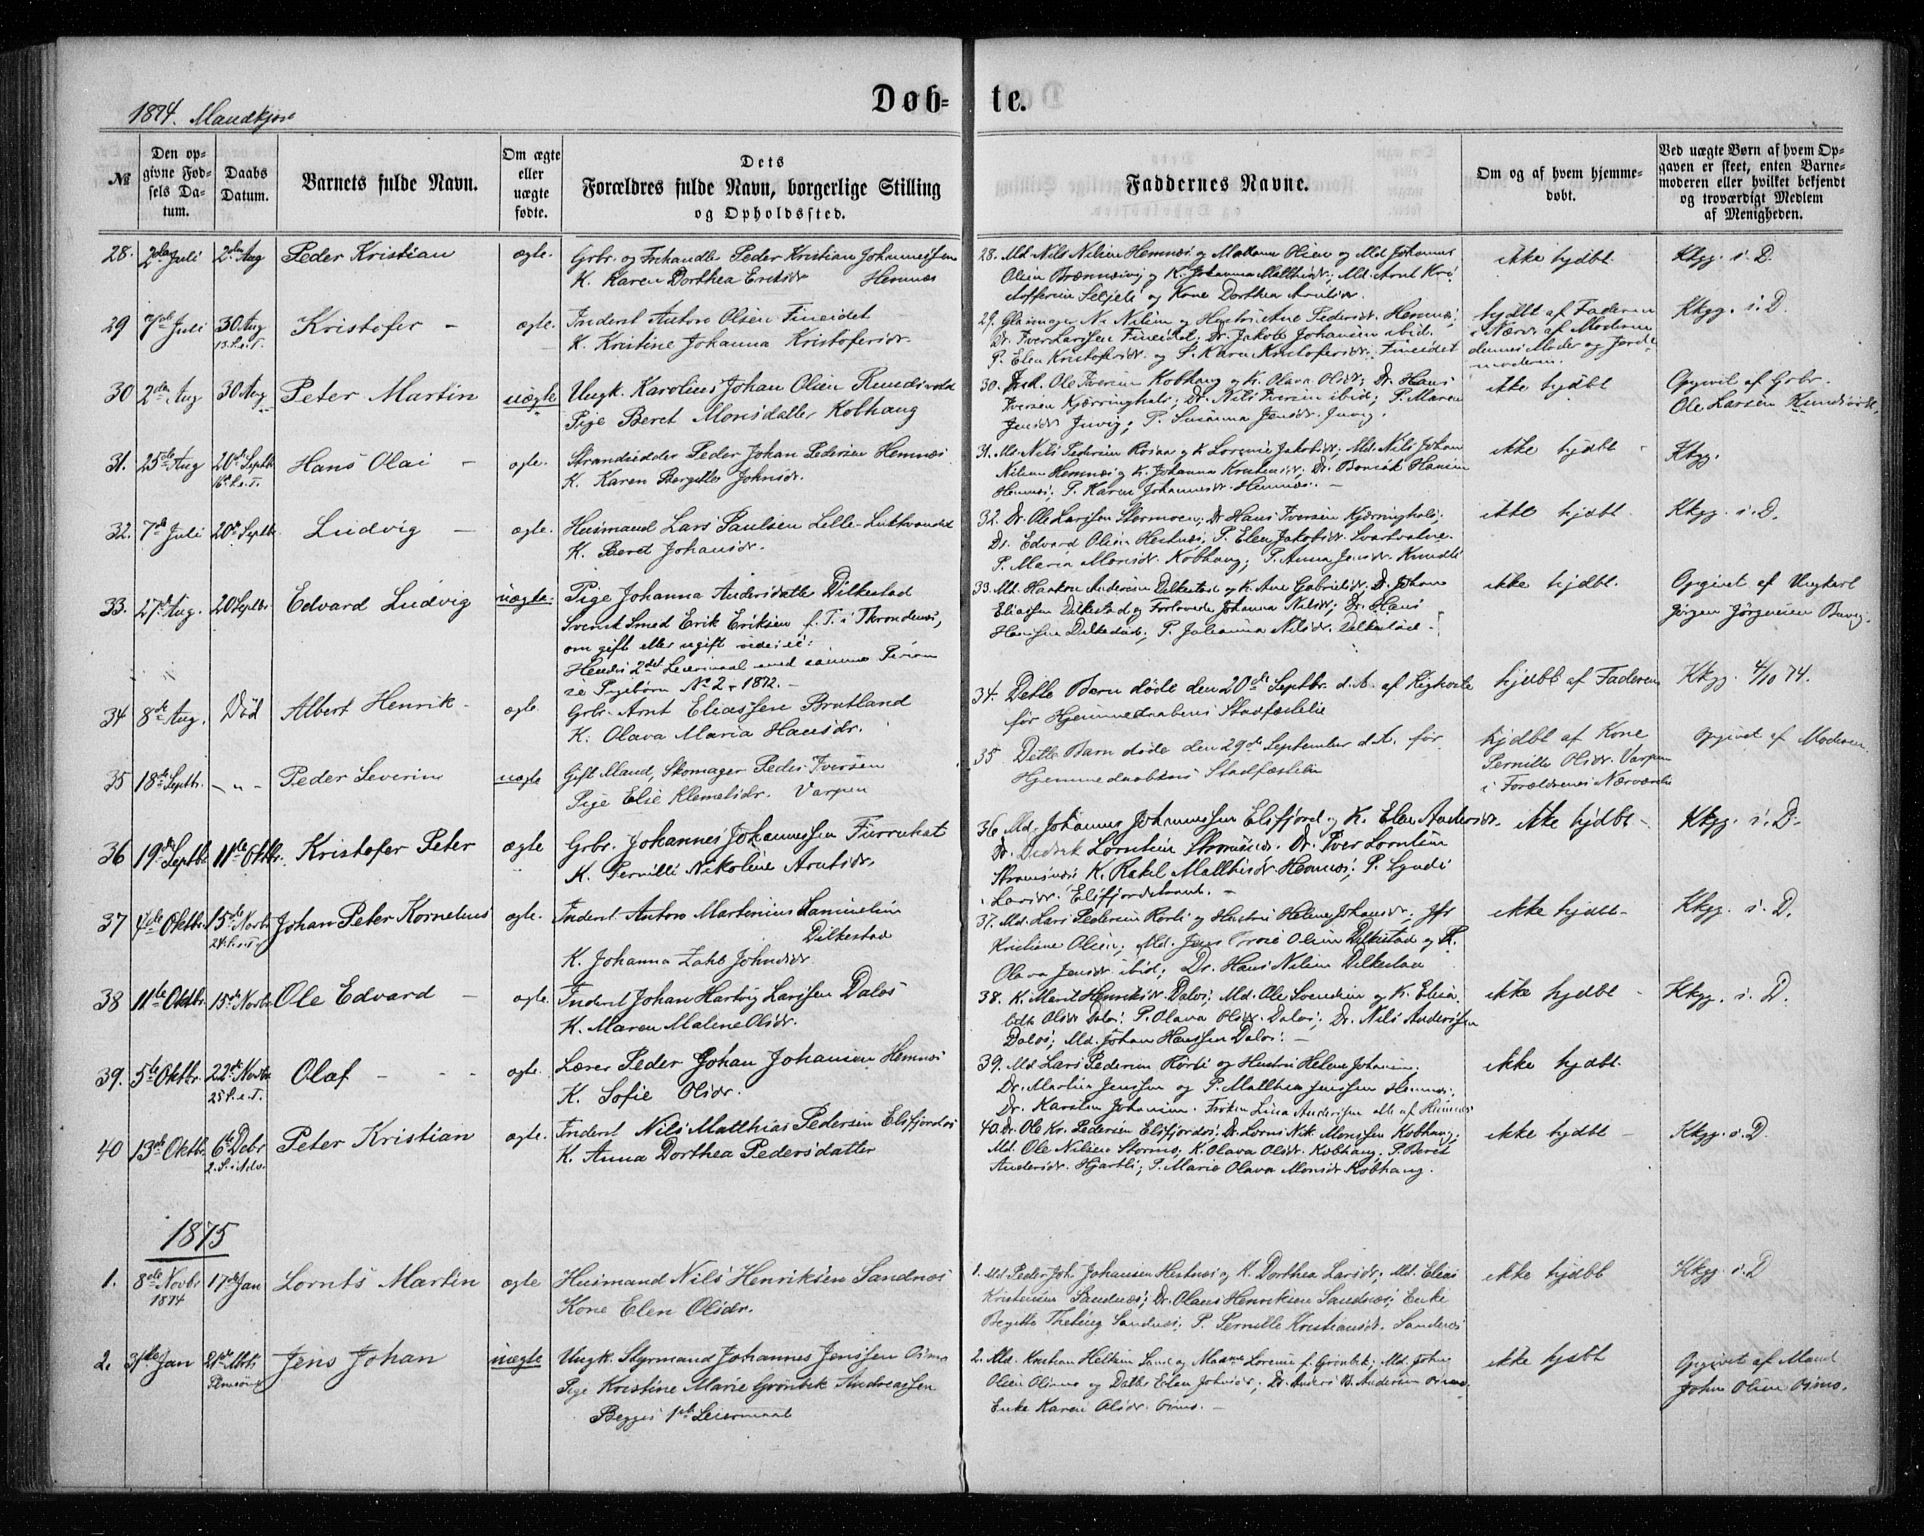 Døb-
te.
1874. Mandkjøn
№
Den op-
givne Fød-
sels Da-
tum.
Daabs
Datum.
Barnets fulde Navn.
Om ægte
eller
uægte
fødte.
Dets
Forældres fulde Navn, borgerlige Stilling
og Opholdssted.
Faddernes Navne.
Om og af hvem hjemme-
døbt.
Ved uægte Børn af hvem Op-
gaven er skeet, enten Barne-
moderen eller hvilket bekjendt
og troværdigt Medlem
af Menigheden.
28. 2den Juli 2den Aug Peder Kristian ægte. Grbr og Frihandler Peder Kristian Johannessen
K. Karen Dorthea Eriksdr Hemnæs
28. Md. Nils Nilsen Hemnæs og Madame Olsen og Md Johannes
Olsen og K. Johanna Matthisdr; Md. Arnt Kri
stoffersen Seljeli og Kone Dorthea Arntsdr.
ikke hjdbt Kkgg. i. D.
29 7de Juli 30 Aug Kristofer - ægte. Inderst Anton Olsen Fineidet
13. S. e. T.
K. Kristine Johanna Kristofersdr.
29. Glasmager N. Nilsen og Hustru Ane Pedersdr. Hemnæs;
Dr. Iver Larssen Fineidet; Dr. Jakob Johansen ibid.
P. Elen Kristofersdr. og P. Karen Kristofersdr. Fineidet
hjdbt af Faderen
i Nærv. af Moderen
dennes Moder og Jorde-
moderen.
Kkgg. i. D.
30 2den Aug 30 Aug Peter Martin uægte Ungk. Karolius Johan Olsen Rundvold
Pige Beret Monsdatter Kobhaug
30. Insk. Ole Iversen Kobhaug og K. Olava Olsdr; Dr. Hans
Iversen Kjærringhals; Dr. Nils Iversen ibid; P. Maren
Jensdr Juvig; P. Susanna Jensdr. Juvig.
ikke hjdbt Opgivet af Grbr.
Ole Larsen
31. 25de Aug 20de Septbr Hans Olai - ægte. Strandsidder Peder Johan Pedersen Hemnæs
16. S. e. T.
K. Karen Bergitte Johnsdr.
31. Md. Nils Pedersen Røsaa og K Lorense Jakobsdr; Md. Nils Johan
Nilsen Hemnæs og K. Johanna Kristensdr; Dr. Bonsak Hansen
Hemnæs; P. Karen Johannesdr Hemnæs. -
ikke hjdbt - Kkgg.
32. 7de Juli 20de Septbr Ludvig - ægte. Husmand Lars Paulsen Lille-Luktvandet
K. Beret Johansdr.
32. Dr. Ole Larssen Stormoen; Dr Hans Iversen Kjærringhals;
Dr. Edvard Olsen Hestnæs; P. Elen Jakobsdr. Svartvatne.
P. Maria Monsdr. Kobhaug; P. Anna Jensdr.
ikke hjdbt. Kkgg. i. D.
33. 27de Aug. 20 Septbr Edvard Ludvig uægte. Pige Johanna Andersdatter Dilkestad
Svensk Smed Erik Eriksen f. T. i Throndenæs,
om gift eller ugift vides ei:
Hendes 2det Leiermaal med samme Person
se Pigebørn No 2 - 1872. -
33. Md. Haakon Andersen Dilkestad og K. Ane Gabrielsdr; Dr. Johan
Eliassen Dilkestad og Forlovede Johanna Nilsdr; Dr. Hans
Hanssen Dilkestad; P. Julianna Nilsdr. Dilkestad.
ikke hjdbt. Opgivet af Ungkarl
Jørgen Jørgensen
34 8de Aug. Død Albert Henrik - ægte Grbr. Arnt Eliassen Brutland
K. Olava Maria Hansdr.
34. Dette Barn døde den 20de Septbr. d. A. af Kighoste
før Hjemmedaabens Stadfæstelse
hjdbt af Faderen Kkgg. 4/10 74.
35 18de Septbr. - " - Peder Severin uægte Gift Mand, Skomager Peder Iversen
Pige Else Klemetsdr. Varpen
35 Dette Barn døde den 29de September d. A. før
Hjemmedaabens Stadfæstelse
hjdbt af Kone
Pernille Olsdr. Varpen
i Forældrenes Nærværelse
opgivet af Moderen.
36 19de Septbr 11te Oktbr. Kristofer Peter ægte Grbr. Johannes Johannessen Furruhat
K. Pernille Nikoline Arntsdr.
36 Md. Johannes Johannessen Elsfjord og K. Elen Andersdr.
Dr. Didrik Lorntsen Strømsnæs. Dr. Iver Lorntsen
Strømsnæs; K. Rakel Matthisdr Hemnæs; P.
Larsdr. -
ikke hjdbt - Kkgg. i. D.
37 4de Oktbr. 15de Novbr Johan Peter Kornelius ægte. Inderst Anton Martinius Samuelsen
24. S. e. T. Dilkestad
K. Johanna Zahl Johnsdr.
37. Md. Lars Pedersen Korli og Hustru Helene Johansdr; Jfr
Kristiane Olsen; Md. Jens Olsen Dilkestad og K.
Olava Jensdr ibid; Dr. Hans Nilsen Dilkestad
ikke hjdbt - Kkgg. i. D.
38 11te Oktbr. 15de Novbr Ole Edvard - ægte. Inderst Johan Hartvig Larssen Dalos
K. Maren Malene Olsdr.
38. K. Merit Henriksdr. Dalos; Md. Ole Svendsen og K. Elisa
beth Olsdr Dalos; P. Olava Olsdr. Dalos; Dr. Nils Anderssen
Dalos; Md. Johan Hanssen Dalos. -
ikke hjdbt - Kkgg. i. D.
39. 5te Oktbr. 22de Novbr Olaf - - - ægte. Lærer Peder Johan Johansen Hemnæs
25 S. e. T.
K. Sofie Olsdr.
39. Md Lars Pedersen Korli og Hustru Helene Johansen;
Dr. Martin Jenssen og P. Matthea Jenssen Hemnæs;
Dr. Karsten Johansen. Frøken Lina Anderssen alle af Hemnæs
ikke hjdbt. Kkgg. i. D.
40 13de Oktbr. 6te Decbr Peter Kristian ægte. Inderst Nils Matthias Pedersen Elsfjordos
2. S. i Adv.
K. Anna Dorthea Pedersdatter
40. Dr. Ole Kr. Pedersen Elsfjordos; Dr. Lorns Nik. Monssen Kobhaug;
Md. Ole Nilsen Stormo; K. Olava Olsdr. Kobhaug; P. Beret
Andersdr. Hjartli; P. Marie Olava Monsdr Kobhaug.
ikke hjdbt - Kkgg. i. D.
1875
1. 8de Novbr 17de Jan Lornts Martin ægte Husmand Nils Henriksen Sandnæs
1874
Kone Elen Olsdr.
1. Md. Peder Joh. Johansen Hestnæs og K. Dorthea Larsdr; Md. Elias
Kristensen Sandnæs; Dr. Olaus Henriksen Sandnæs; Enke
Begitte Sandnæs; P. Pernille Kristiansdr. Sandnæs
ikke hjdbt Kkgg. i. D
2. 31te Jan 21de Marts Jens Johan uægte Ungk. Styrmand Johannes Jenssen
Pige Kristine Marie Grønbek Andreassen
Begges 1ste Leiermaal
2. Md. Kristian Sund og Madame Lorense f. Grønbek; Md. John
Olsen og Datter Elen Johnsdr; Dr. Anders B. Andersen
Enke Karen Olsdr. -
ikke hjdbt Opgivet af Mand
John Olsen